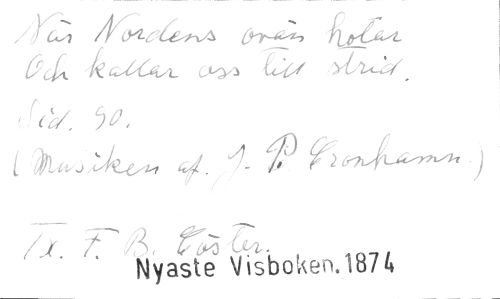 När Nordens ovän hotar
Och kallar oss till strid.
Sid. 90.
(Musiken af. J. P. Cronhamn.)
Tx. F. B. Cöster.
Nyaste Visboken. 1874